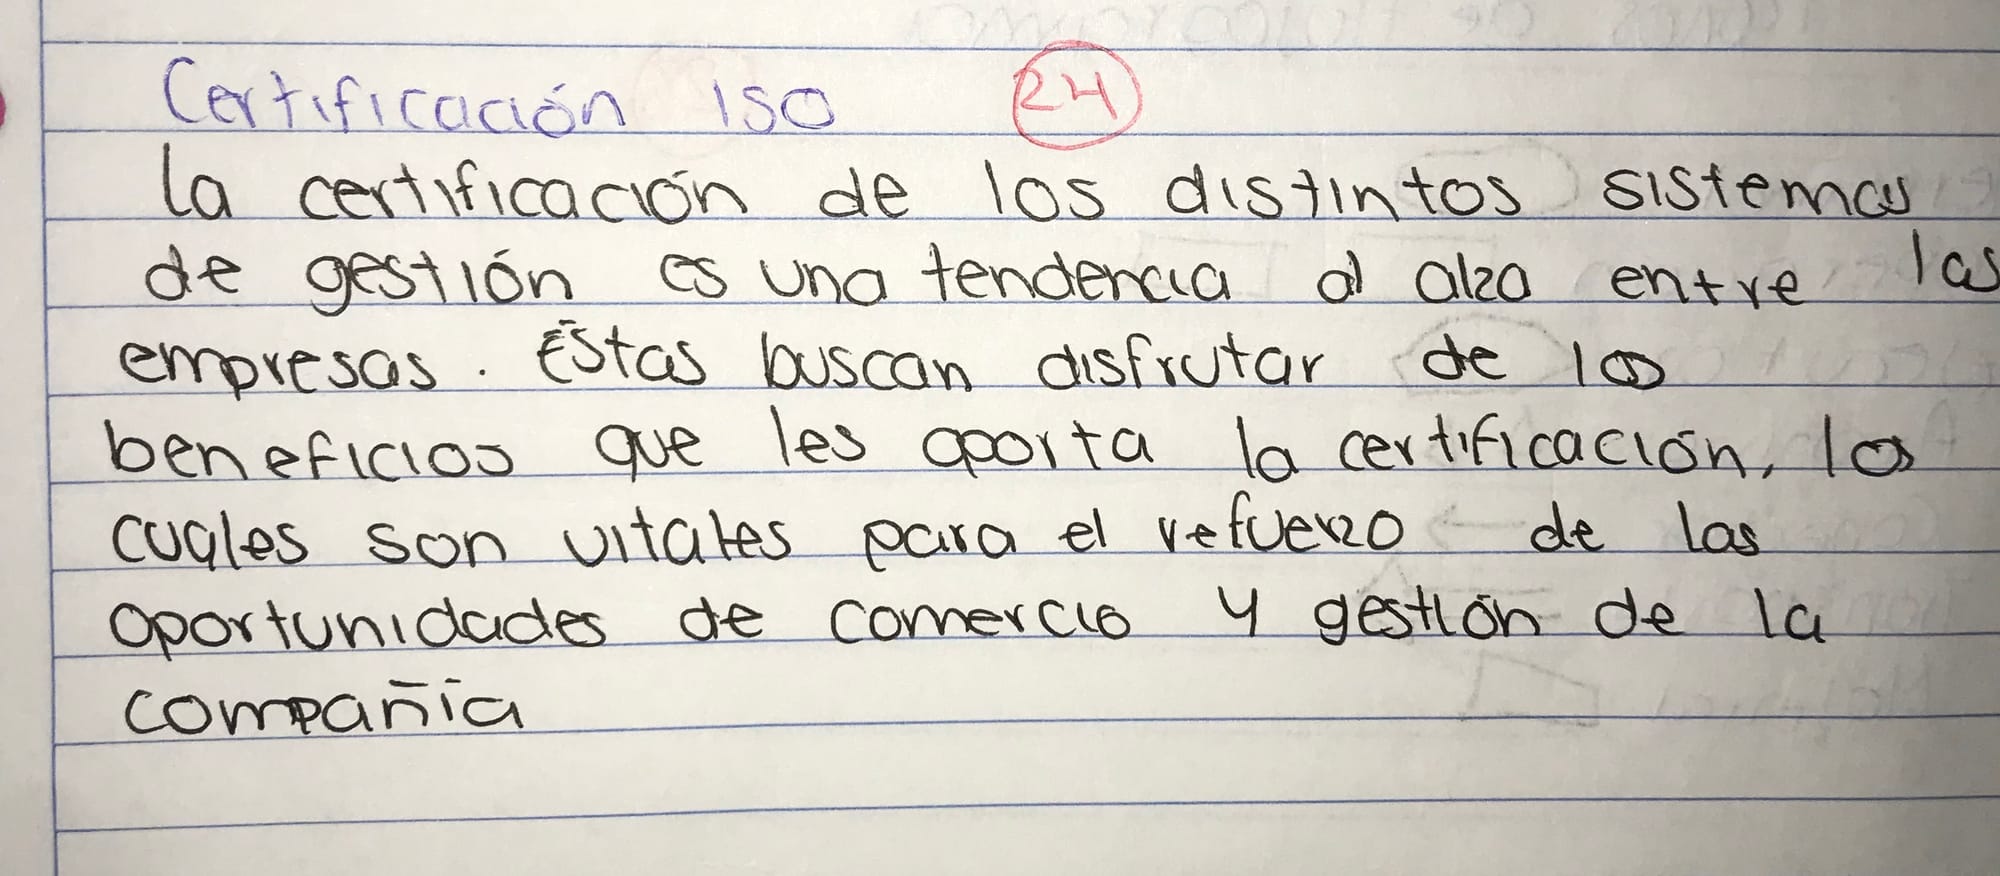 Certificación ISO 24
la certificación de los distintos sistemas
de gestión es una tendencia al alza entre las
empresas. Éstas buscan disfrutar de los
beneficios que les aporta la certificación, los
cuales son vitales para el refuerzo de las
oportunidades de comercio y gestión de la
compañía